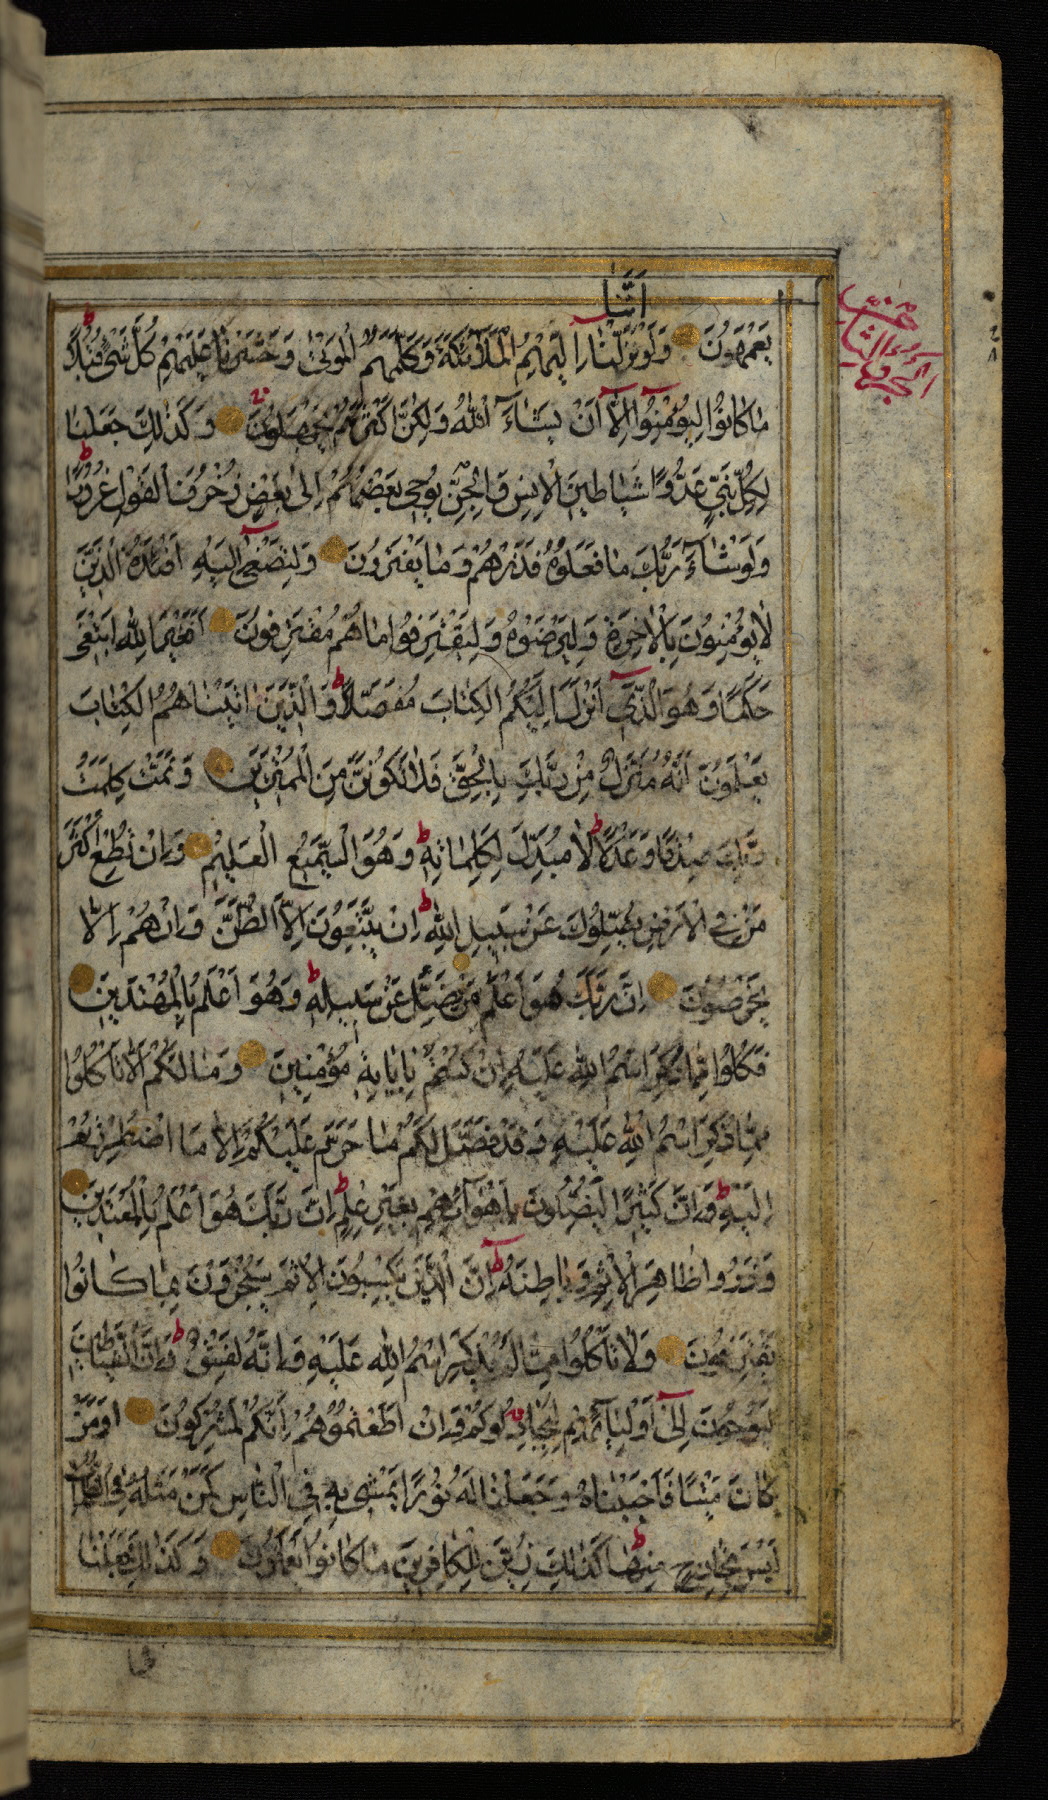 اننا
يَعْمَهُونَ وَلَوْ نَزَّلْنَا إِلَيْهِمُ الْمَلَائِكَةَ وَكَلَّمَهُمُ الْمَوْتَىٰ وَحَشَرْنَا عَلَيْهِمْ كُلَّ شَيْءٍ قُبُلًا
مَا كَانُوا لِيُؤْمِنُوا إِلَّا أَنْ يَشَاءَ اللَّهُ وَلَٰكِنَّ أَكْثَرَهُمْ يَجْهَلُونَ وَكَذَٰلِكَ جَعَلْنَا
لِكُلِّ نَبِيٍّ عَدُوًّا شَيَاطِينَ الْإِنْسِ وَالْجِنِّ يُوحِي بَعْضُهُمْ إِلَىٰ بَعْضٍ زُخْرُفَ الْقَوْلِ غُرُورًا
وَلَوْ شَاءَ رَبُّكَ مَا فَعَلُوهُ فَذَرْهُمْ وَمَا يَفْتَرُونَ وَلِتَصْغَىٰ إِلَيْهِ أَفْئِدَةُ الَّذِينَ
لَا يُؤْمِنُونَ بِالْآخِرَةِ وَلِيَرْضَوْهُ وَلِيَقْتَرِفُوا مَا هُمْ مُقْتَرِفُونَ أَفَغَيْرَ اللَّهِ أَبْتَغِي
حَكَمًا وَهُوَ الَّذِي أَنْزَلَ إِلَيْكُمُ الْكِتَابَ مُفَصَّلًا وَالَّذِينَ آتَيْنَاهُمُ الْكِتَابَ
يَعْلَمُونَ أَنَّهُ مُنَزَّلٌ مِنْ رَبِّكَ بِالْحَقِّ فَلَا تَكُونَنَّ مِنَ الْمُمْتَرِينَ وَتَمَّتْ كَلِمَتُ
رَبِّكَ صِدْقًا وَعَدْلًا لَا مُبَدِّلَ لِكَلِمَاتِهِ وَهُوَ السَّمِيعُ الْعَلِيمُ وَإِنْ تُطِعْ أَكْثَرَ
مَنْ فِي الْأَرْضِ يُضِلُّوكَ عَنْ سَبِيلِ اللَّهِ إِنْ يَتَّبِعُونَ إِلَّا الظَّنَّ وَإِنْ هُمْ إِلَّا
يَخْرُصُونَ إِنَّ رَبَّكَ هُوَ أَعْلَمُ مَنْ يَضِلُّ عَنْ سَبِيلِهِ وَهُوَ أَعْلَمُ بِالْمُهْتَدِينَ
فَكُلُوا مِمَّا ذُكِرَ اسْمُ اللَّهِ عَلَيْهِ إِنْ كُنْتُمْ بِآيَاتِهِ مُؤْمِنِينَ وَمَا لَكُمْ أَلَّا تَأْكُلُوا
مِمَّا ذُكِرَ اسْمُ اللَّهِ عَلَيْهِ وَقَدْ فَصَّلَ لَكُمْ مَا حَرَّمَ عَلَيْكُمْ إِلَّا مَا اضْطُرِرْتُمْ
إِلَيْهِ وَإِنَّ كَثِيرًا لَيُضِلُّونَ بِأَهْوَائِهِمْ بِغَيْرِ عِلْمٍ إِنَّ رَبَّكَ هُوَ أَعْلَمُ بِالْمُعْتَدِينَ
وَذَرُوا ظَاهِرَ الْإِثْمِ وَبَاطِنَهُ إِنَّ الَّذِينَ يَكْسِبُونَ الْإِثْمَ سَيُجْزَوْنَ بِمَا كَانُوا
يَقْتَرِفُونَ وَلَا تَأْكُلُوا مِمَّا لَمْ يُذْكَرِ اسْمُ اللَّهِ عَلَيْهِ وَإِنَّهُ لَفِسْقٌ وَإِنَّ الشَّيَاطِينَ
لَيُوحُونَ إِلَىٰ أَوْلِيَائِهِمْ لِيُجَادِلُوكُمْ وَإِنْ أَطَعْتُمُوهُمْ إِنَّكُمْ لَمُشْرِكُونَ أَوَمَنْ
كَانَ مَيْتًا فَأَحْيَيْنَاهُ وَجَعَلْنَا لَهُ نُورًا يَمْشِي بِهِ فِي النَّاسِ كَمَنْ مَثَلُهُ فِي الظُّلُمَاتِ
لَيْسَ بِخَارِجٍ مِنْهَا كَذَٰلِكَ زُيِّنَ لِلْكَافِرِينَ مَا كَانُوا يَعْمَلُونَ وَكَذَٰلِكَ جَعَلْنَا